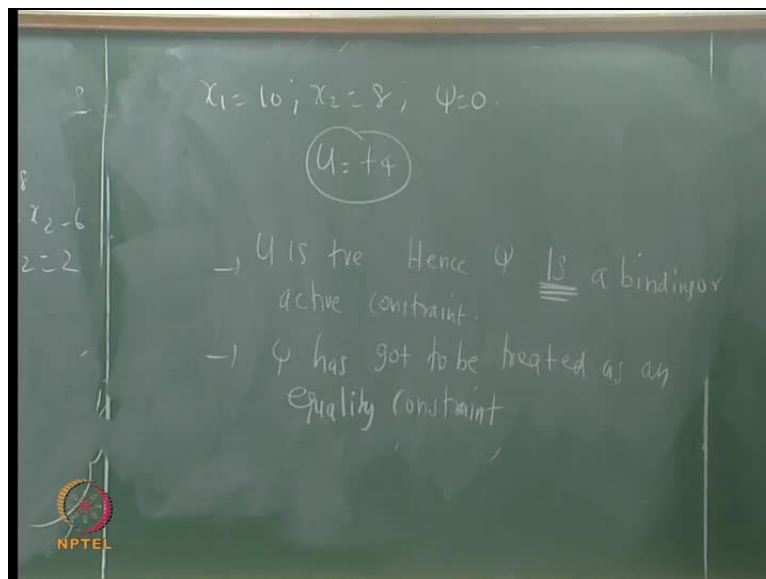 8
x₂-6
2=2
x₁=10; x₂=8; Ψ=0.
u=+4
→ u is +ve Hence Ψ IS a binding or
active constraint.
→ Ψ has got to be treated as an
equality constraint
NPTEL